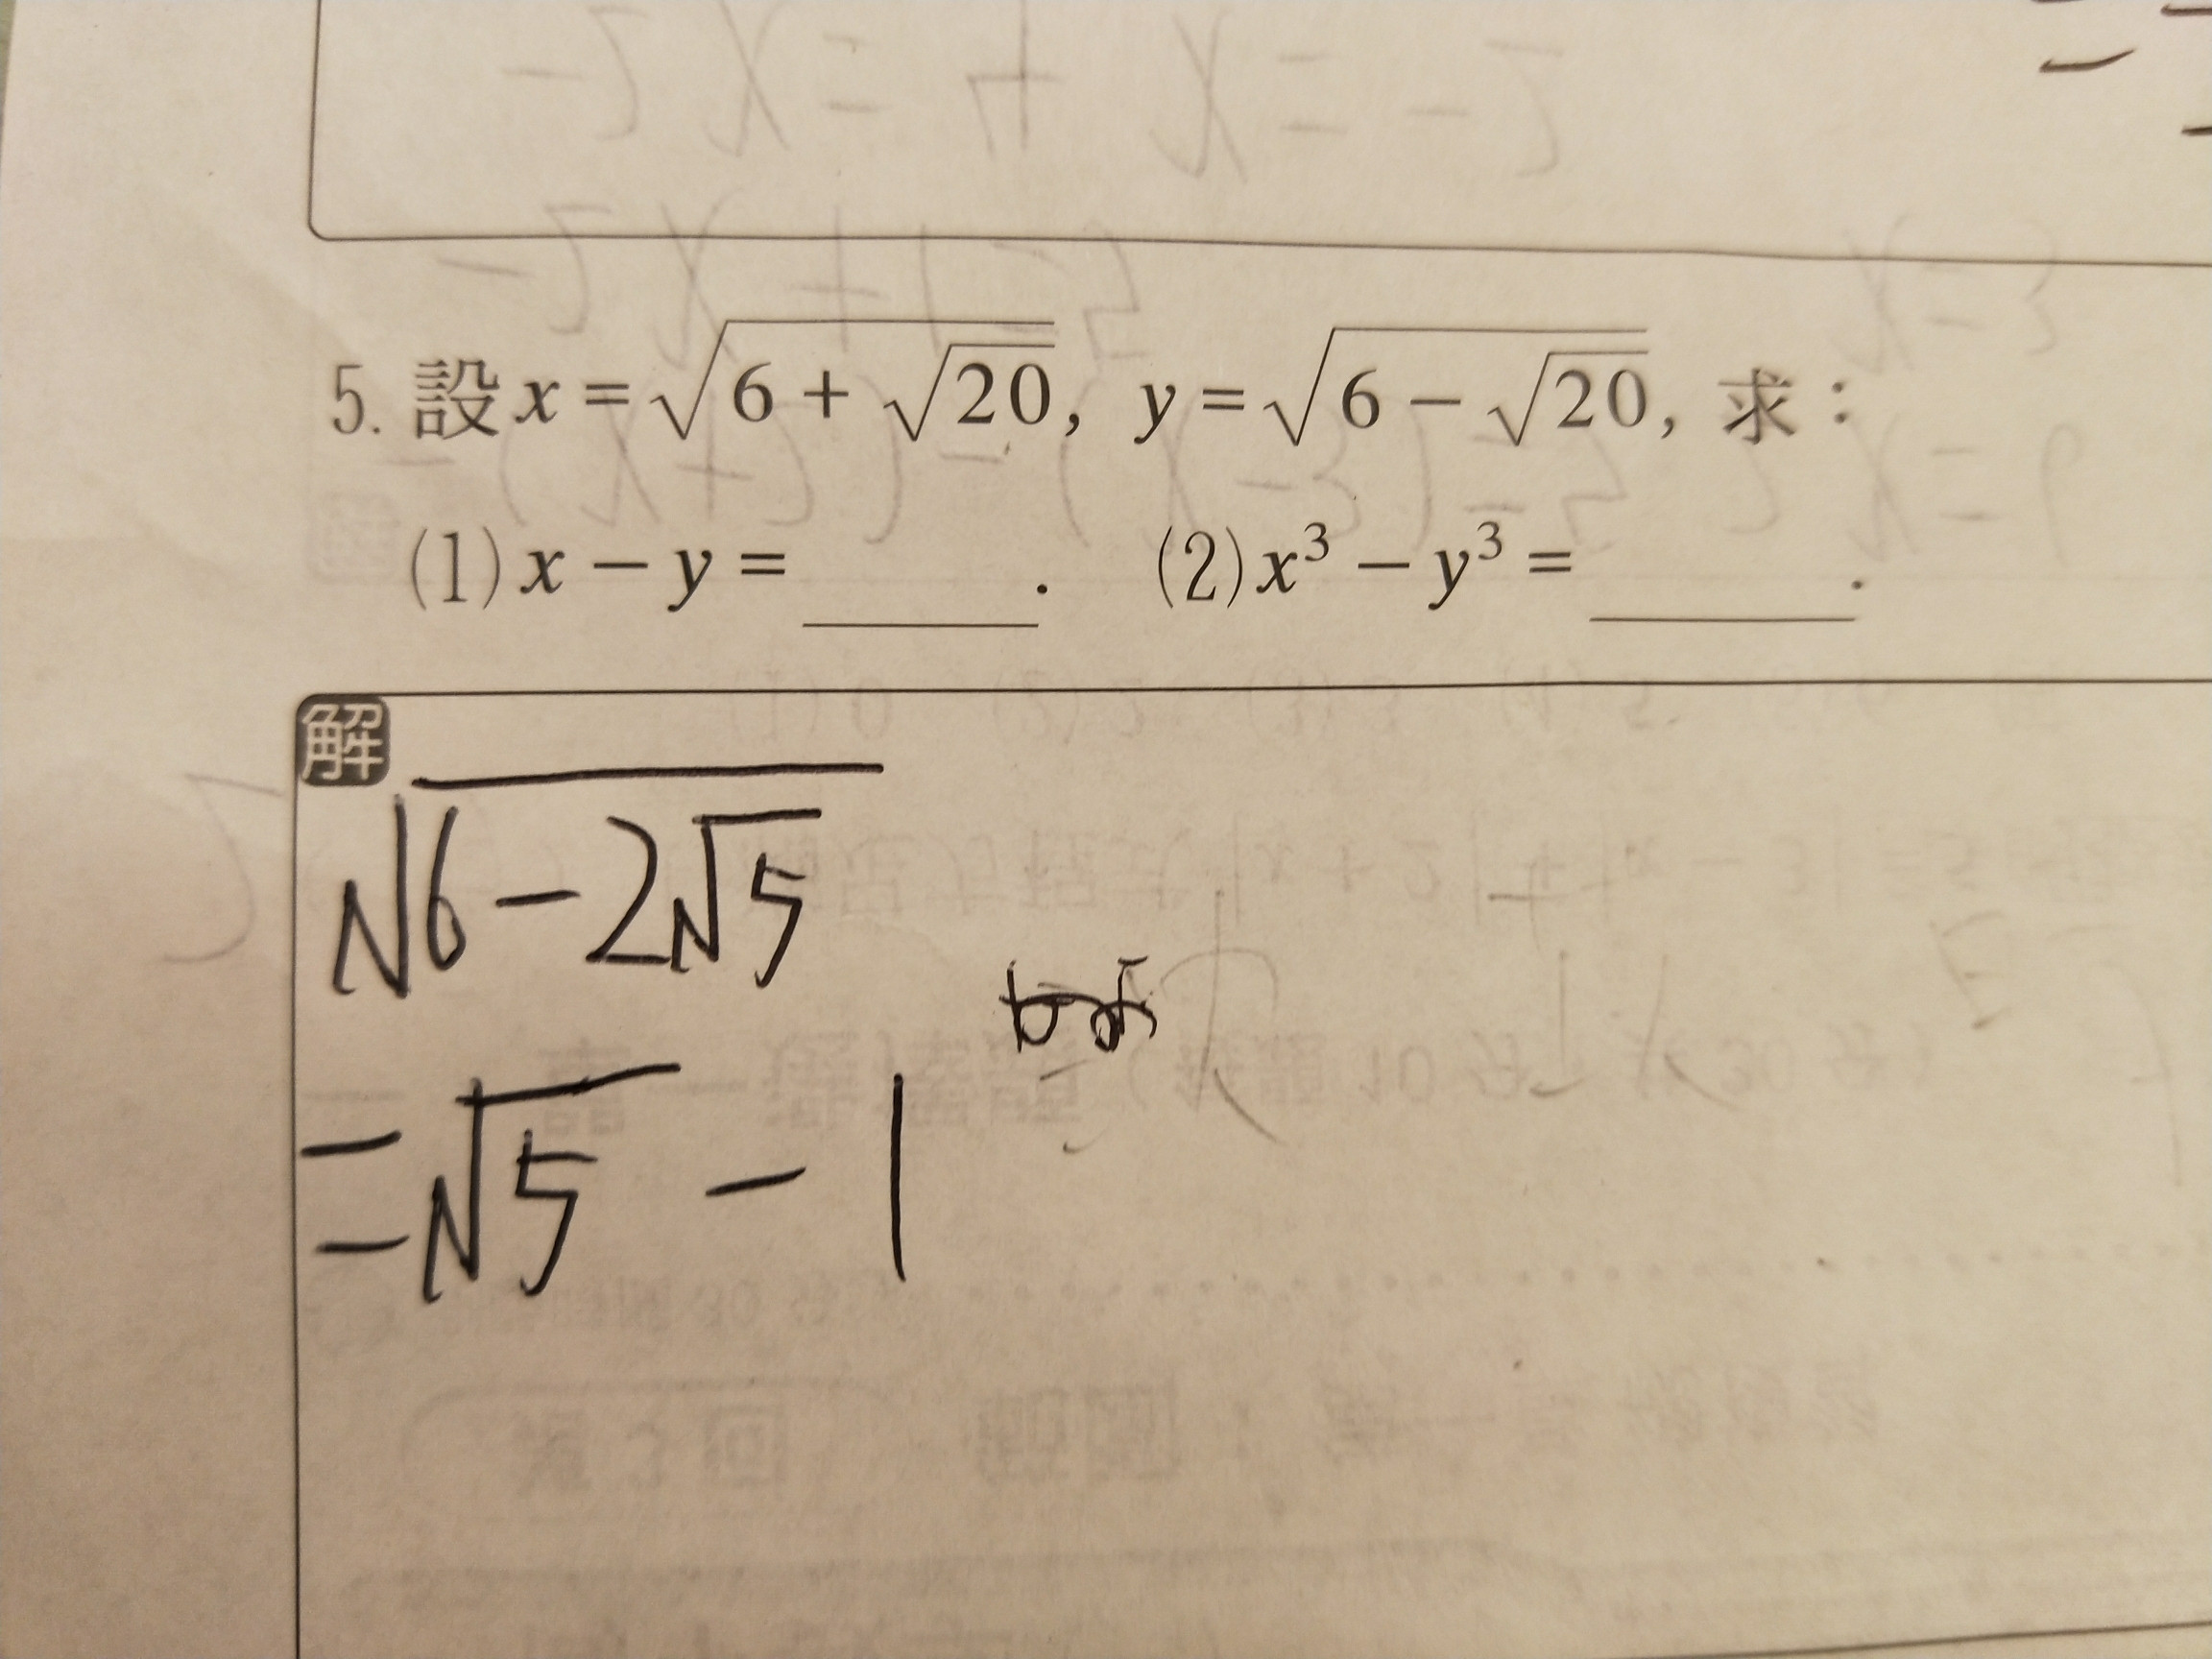 5. 設 x = √(6 + √20), y = √(6 − √20), 求：
(1) x − y = ______. (2) x³ − y³ = ______.
解
√(6 − 2√5)
= √5 − 1